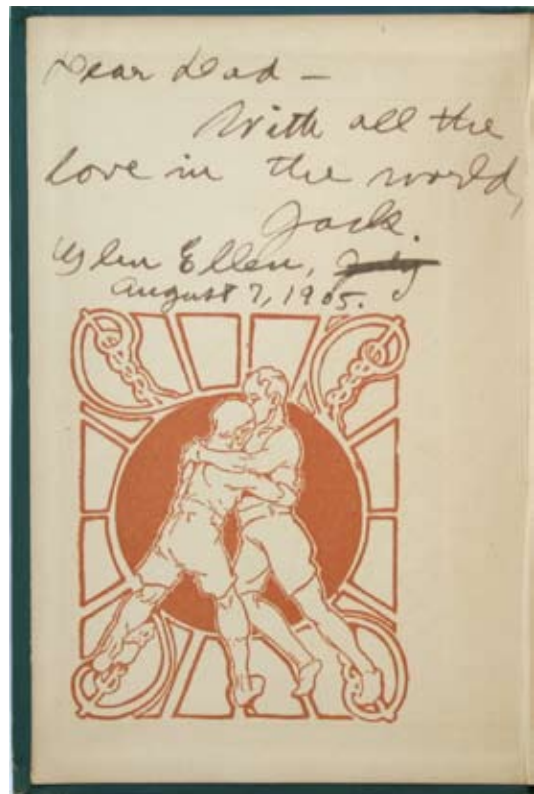 Dear Dad —
With all the
love in the world,
Jack.
Glen Ellen, July
August 7, 1905.